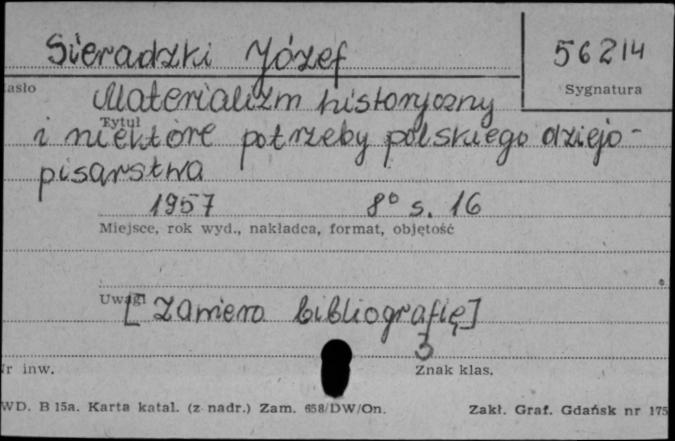 Sieradzki Józef
56214
asło
Sygnatura
Materializm historyczny
Tytuł
i niektóre potrzeby polskiego dziejo-
pisarstwa
1957 8° s. 16
Miejsce, rok wyd., nakładca, format, objętość
Uwagi
[Zawiera bibliografię]
3
r inw.
Znak klas.
WD. B 15a. Karta katal. (z nadr.) Zam. 658/DW/On.
Zakł. Graf. Gdańsk nr 175